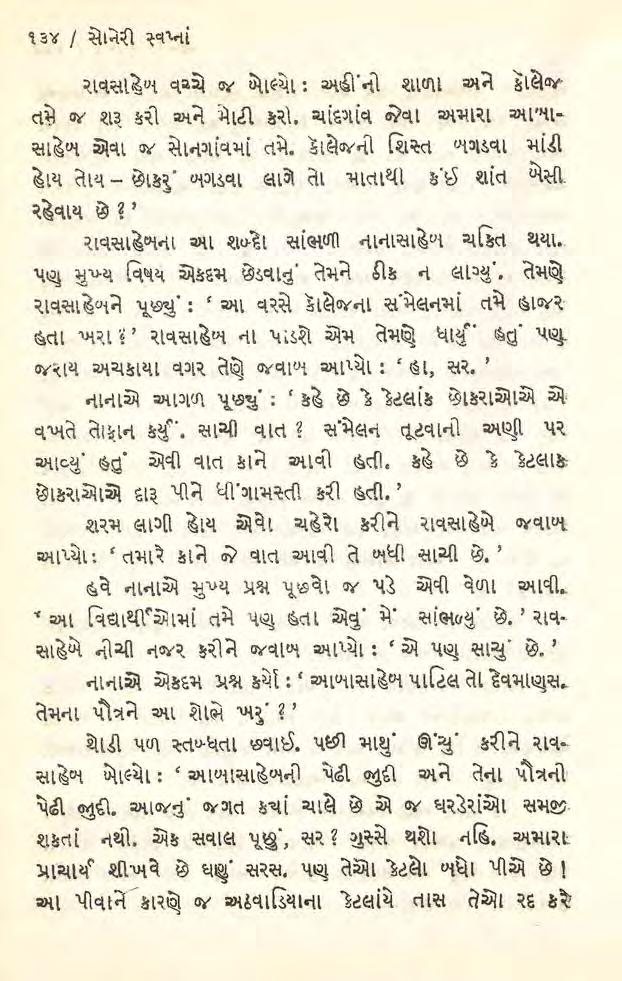 ૧૩૪ / સોનેરી સ્વપ્નાં
રાવસાહેબ વચ્ચે જ બોલ્યો : અહીંની શાળા અને કૉલેજ
તમે જ શરૂ કરી અને મોટી કરો. ચાંદગાંવ જેવા અમારા આબા-
સાહેબ એવા જ સોનગાંવમાં તમે. કૉલેજની શિસ્ત બગડવા માંડી
હોય તોય – છોકરું બગડવા લાગે તો માતાથી કંઈ શાંત બેસી
રહેવાય છે ? ’
રાવસાહેબના આ શબ્દો સાંભળી નાનાસાહેબ ચકિત થયા.
પણ મુખ્ય વિષય એકદમ છેડવાનું તેમને ઠીક ન લાગ્યું. તેમણે
રાવસાહેબને પૂછ્યું : ‘ આ વરસે કૉલેજના સંમેલનમાં તમે હાજર
હતા ખરા ? ’ રાવસાહેબ ના પાડશે એમ તેમણે ધાર્યું હતું પણ
જરાય અચકાયા વગર તેણે જવાબ આપ્યો : ‘ હા, સર. ’
નાનાએ આગળ પૂછ્યું : ‘ કહે છે કે કેટલાંક છોકરાઓએ એ
વખતે તોફાન કર્યું. સાચી વાત ? સંમેલન તૂટવાની અણી પર
આવ્યું હતું એવી વાત કાને આવી હતી. કહે છે કે કેટલાક
છોકરાઓએ દારૂ પીને ધીંગામસ્તી કરી હતી. ’
શરમ લાગી હોય એવો ચહેરો કરીને રાવસાહેબે જવાબ
આપ્યો : ‘ તમારે કાને જે વાત આવી તે બધી સાચી છે. ’
હવે નાનાએ મુખ્ય પ્રશ્ન પૂછવો જ પડે એવી વેળા આવી.
‘ આ વિદ્યાર્થીઓમાં તમે પણ હતા એવું મેં સાંભળ્યું છે. ’ રાવ-
સાહેબે નીચી નજર કરીને જવાબ આપ્યો : ‘ એ પણ સાચું છે. ’
નાનાએ એકદમ પ્રશ્ન કર્યો : ‘ આબાસાહેબ પાટિલ તો દેવમાણસ.
તેમના પૌત્રને આ શોભે ખરું ? ’
થોડી પળ સ્તબ્ધતા છવાઈ. પછી માથું ઊંચું કરીને રાવ-
સાહેબ બોલ્યો : ‘ આબાસાહેબની પેઢી જુદી અને તેના પૌત્રની
પેઢી જુદી. આજનું જગત ક્યાં ચાલે છે એ જ ઘરડેરાંઓ સમજી
શકતાં નથી. એક સવાલ પૂછું, સર ? ગુસ્સે થશો નહિ. અમારા
પ્રાચાર્ય શીખવે છે ઘણું સરસ. પણ તેઓ કેટલો બધો પીએ છે !
આ પીવાને કારણે જ અઠવાડિયાના કેટલાંયે તાસ તેઓ રદ કરે